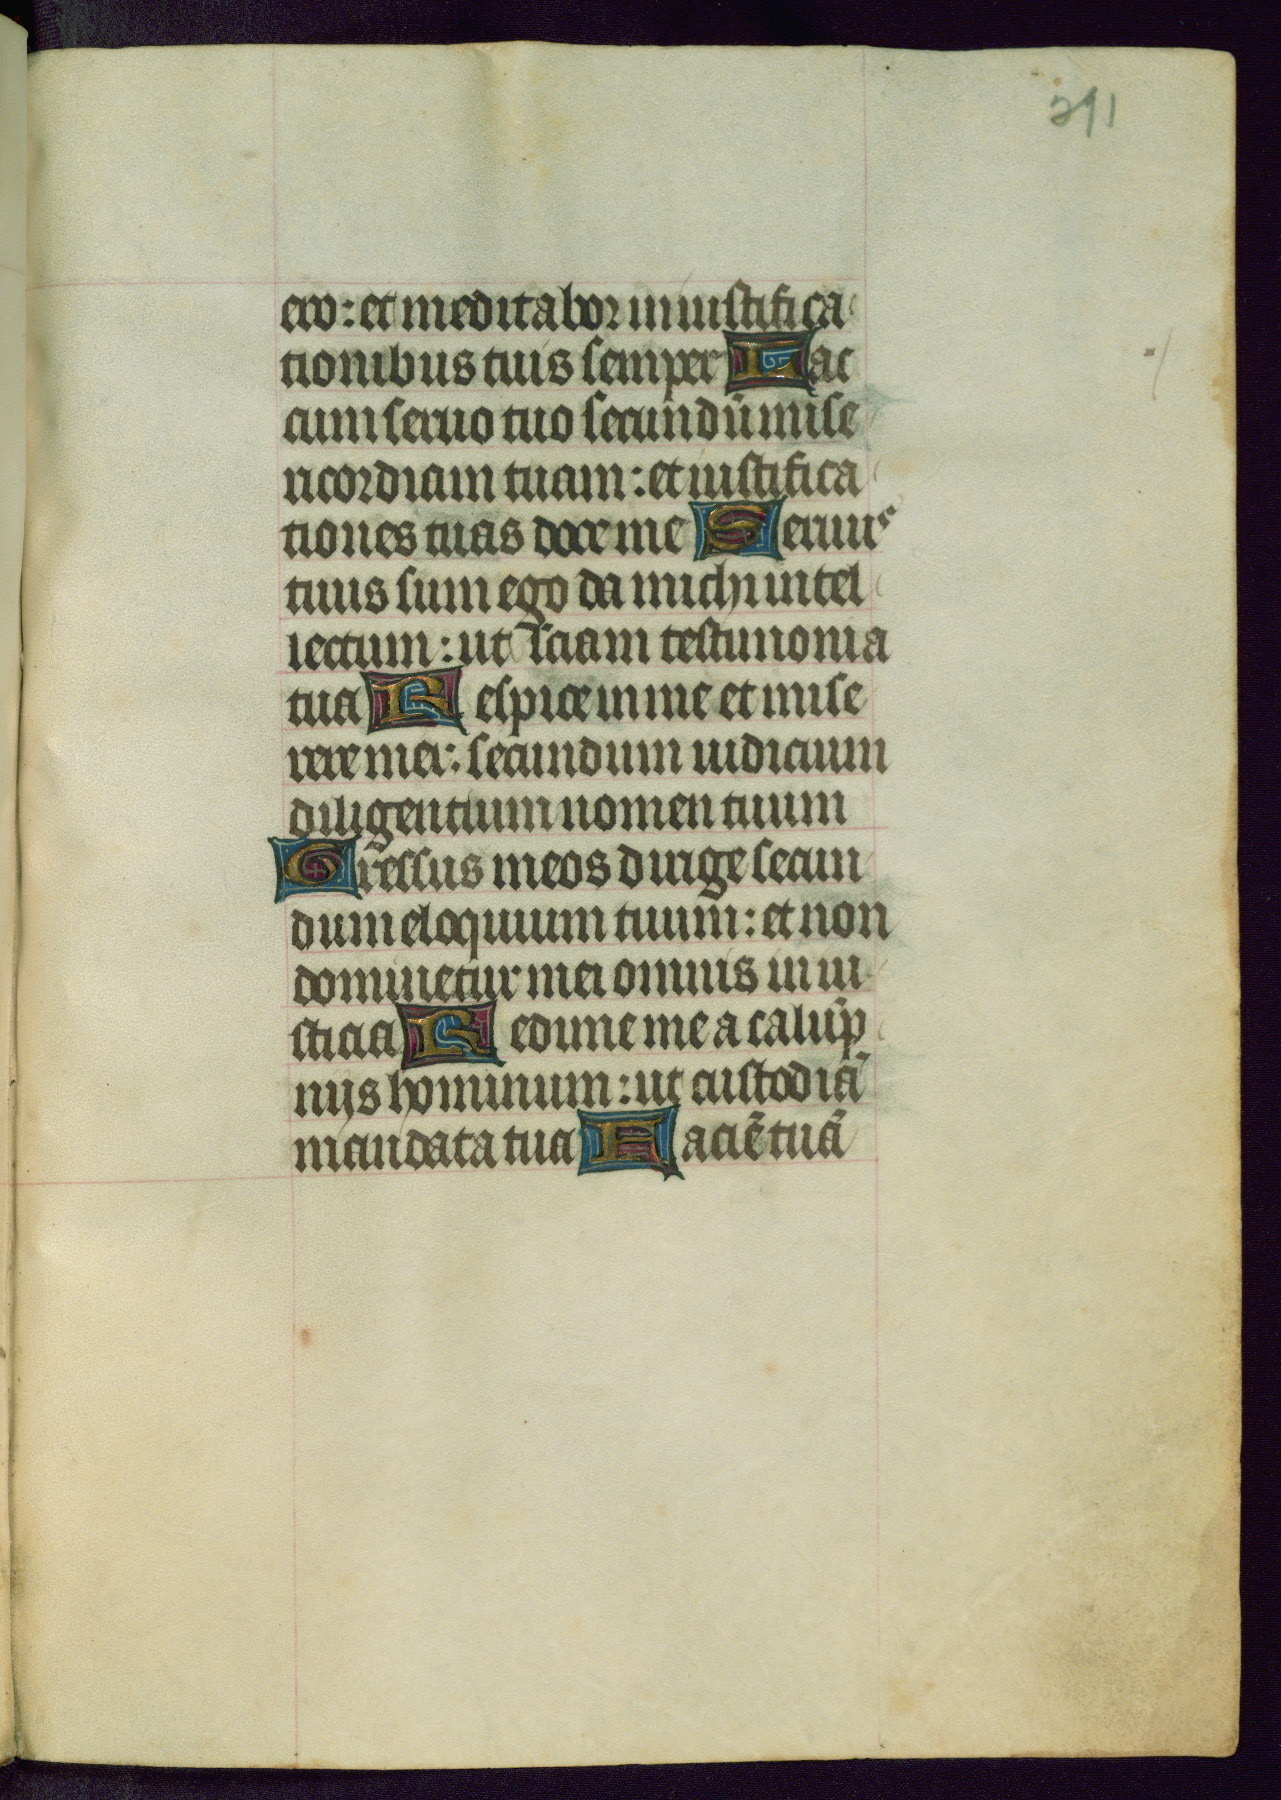 291
ero: et meditabor in iustifica
tionibus tuis semper Fac
cum seruo tuo secundū mise
ricordiam tuam: et iustifica
tiones tuas doce me Seruus
tuus sum ego da michi intel
lectum: ut sciam testimonia
tua Respice in me et mise
rere mei: secundum iudicium
diligentium nomen tuum
Gressus meos dirige secun
dum eloquium tuum: et non
dominetur mei omnis in iu
sticia Redime me a calūp
nijs hominum: ut custodiā
mandata tua Faciē tuā